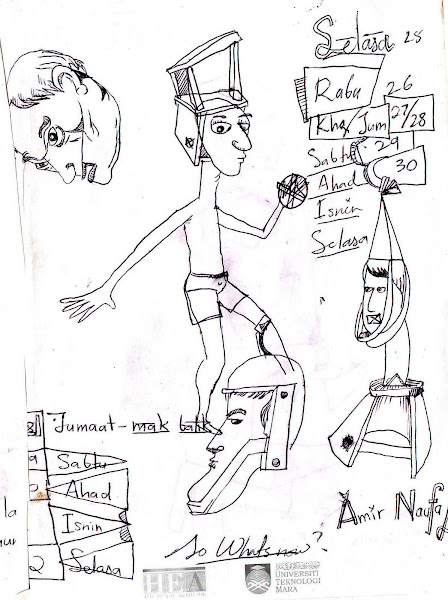 Selasa 25
Rabu 26
Kha/Jum 27/28
Sabtu 29
Ahad 30
Isnin
Selasa
Jumaat - mak balik
Sabtu
Ahad
Isnin
2 Selasa
la
Amir Naufa
So Whats now?
HEA
UNIVERSITI
TEKNOLOGI
MARA